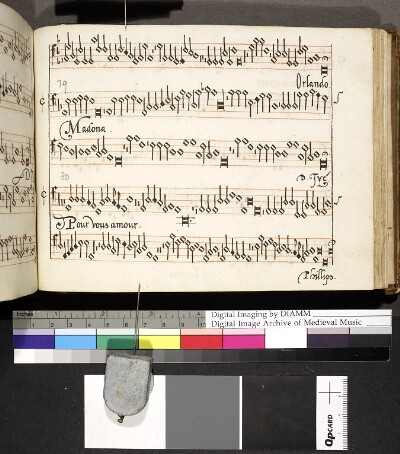 Orlando
79
Madona
D. Tye
80
Pour vous amour.
Phillips.
inches 1 2 3 4
Digital Imaging by DIAMM
Digital Image Archive of Medieval Music
QPCARD